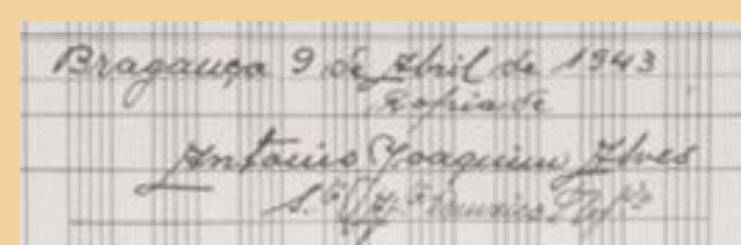 Bragança 9 de Abril de 1943
Copia de
Antonio Joaquim Alves
S.